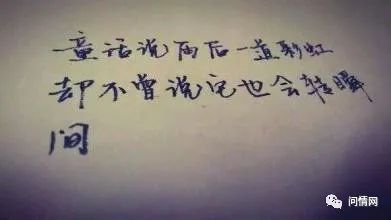 童话说雨后一道彩虹
却不曾说它也会转瞬
间
问情网